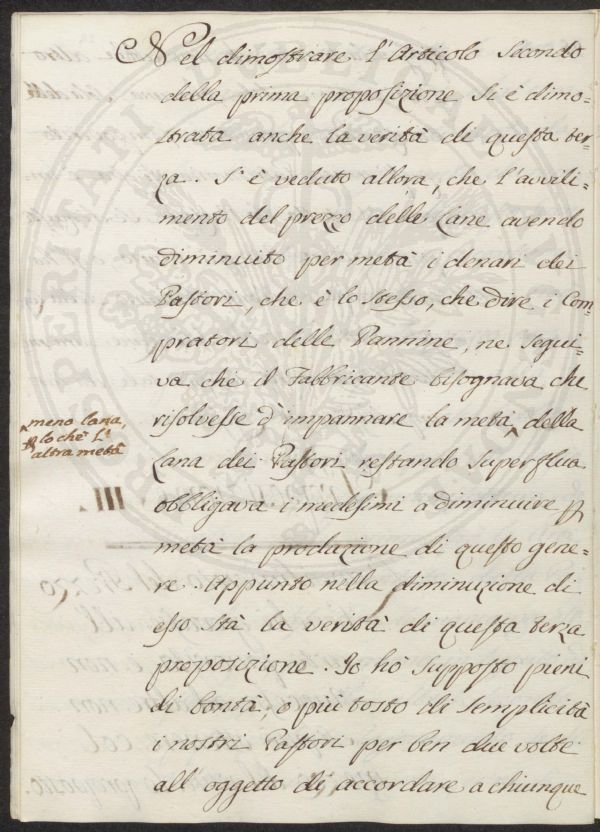 Nel dimostrare l'Articolo Secondo
della prima proposizione si è dimo=
strata anche la verità di questa ter=
za. S'è veduto allora, che l'avvili=
mento del prezzo delle Lane avendo
diminuito per metà i denari dei
Pastori, che è lo stesso, che dire i Com
pratori delle Pannine, ne segui=
va che il Fabbricante bisognava che
risolvesse d'impannare la metà ^ della
^ meno lana,
lo chè l'
altra metà
Lana dei Pastori restando superflua
obbligava i medesimi a diminuire p
metà la produzione di questo gene=
re. Appunto nella diminuzione di
esso stà la verità di questa terza
proposizione. Io hò supposto pieni
di bontà, o più tosto di semplicità
i nostri Pastori per ben due volte
all'oggetto di accordare a chiunque